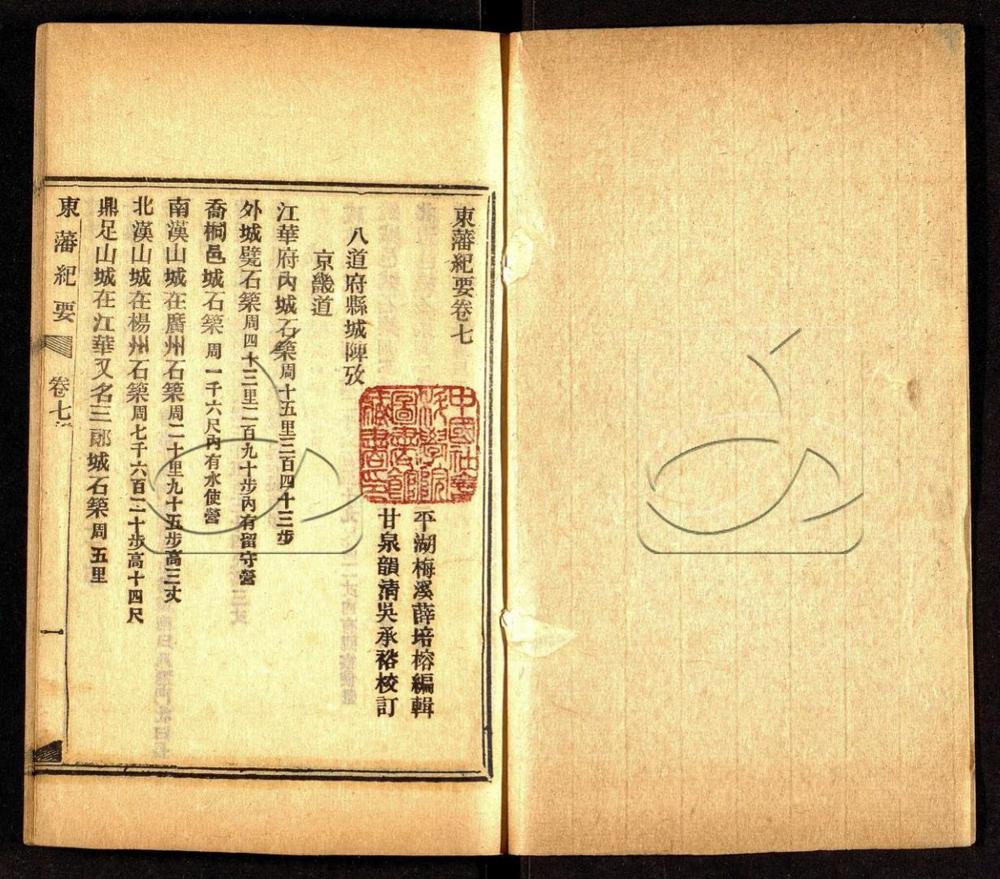 東藩紀要卷七
平湖梅溪薛培榕編輯
甘泉韻清吳承裕校訂
中國社會
科學院
圖書館
藏書印
八道府縣城陴攷
京畿道
江華府內城石築周十五里三百四十三步
外城甓石築周四十三里二百九十步內有留守營
喬桐邑城石築周一千六尺內有水使營
南漢山城在廣州石築周二十里九十五步高三丈
北漢山城在楊州石築周七千六百二十步高十四尺
鼎足山城在江華又名三郎城石築周五里
東藩紀要
卷七
一